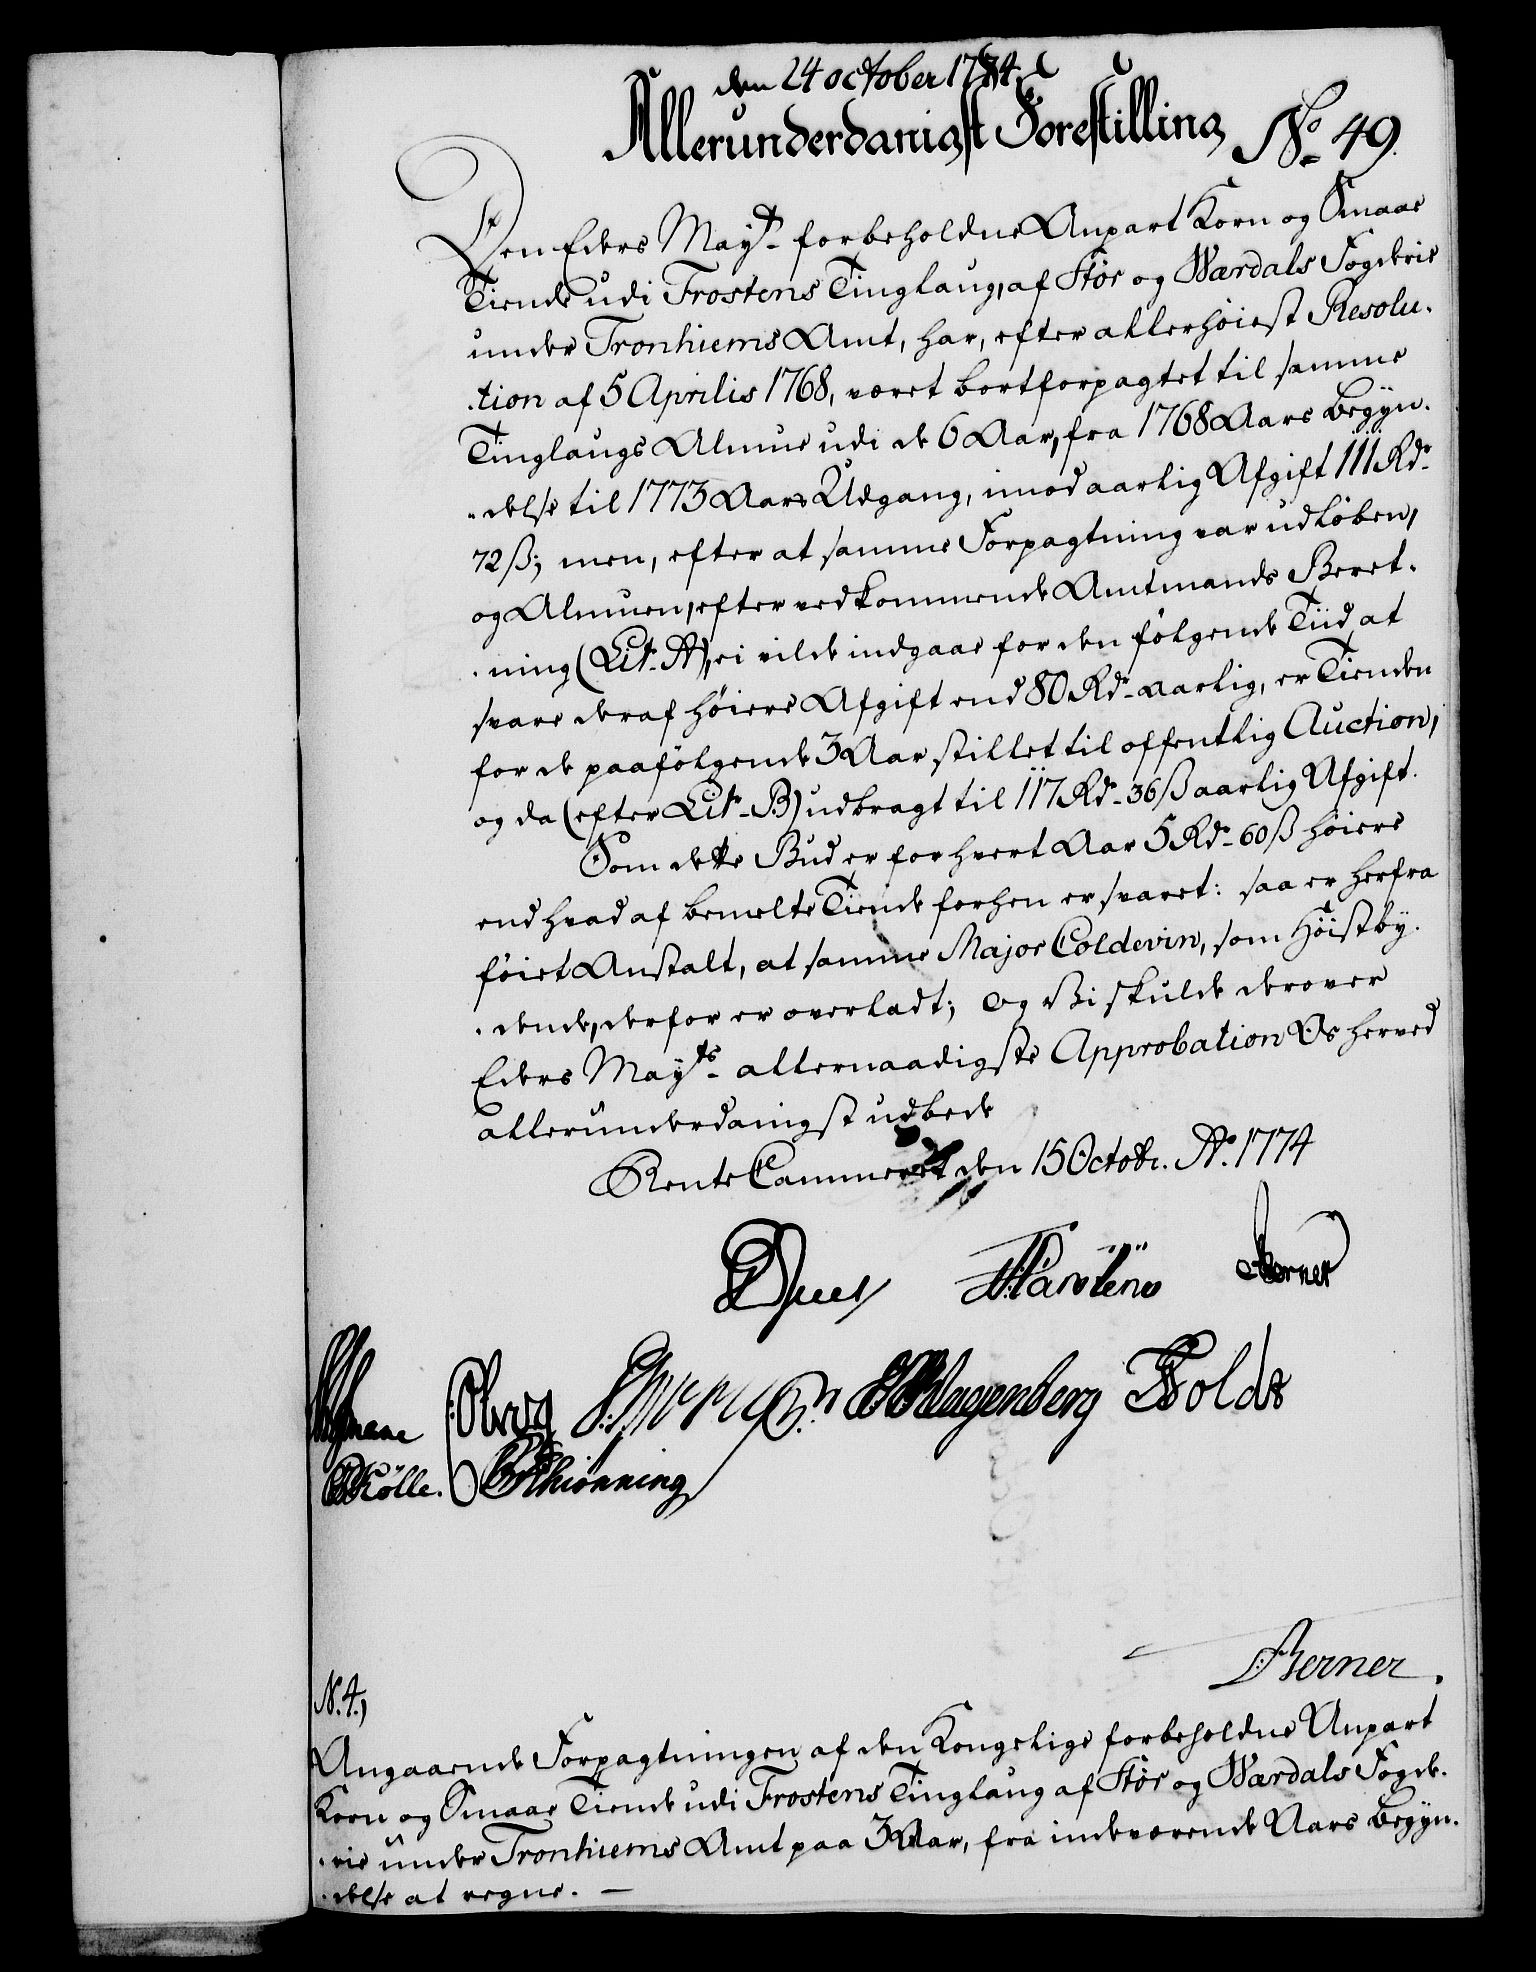 den 24 october 1774
Allerunderdanigst Forestilling No 49.
Den Eders Mayts forbeholdne Anpart Korn og Smaae
Tiende udi Frostens Tinglaug, af Stör og Wærdals Fogderie
under Tronhiems Amt, har, efter allerhöiest Resolu-
-tion af 5 Aprilis 1768, været bortforpagtet til samme
Tinglaugs Almue udi de 6 Aar, fra 1768 Aars Begyn-
-delse til 1773 Aars Udgang, imod aarlig Afgift 111 Rdr
72 ß; men, efter at samme Forpagtning var udlöben,
og Almuen, efter vedkommende Amtmands Beret-
-ning (Litr A), ei vilde indgaae for den fölgende Tiid at
svare deraf höiere Afgift end 80 Rdr aarlig, er Tienden
for de paafölgende 3 Aar stillet til offentlig Auction,
og da (efter Litr B) udbragt til 117 Rdr 36 ß aarlig Afgift.
Som dette Bud er for hvert Aar 5 Rdr 60 ß höiere
end hvad af bemelte Tiende forhen er svaret: saa er herfra
föiet Anstalt, at samme Major Coldevin, som Höistby-
-dende, derfor er overladt; og Vi skulde derover
Eders Mayts allernaadigste Approbation Os herved
allerunderdanigst udbede
Rente Cammeret den 15 Octobr. Ao. 1774
Juel Martens Berner
Klagenberg Holdt
Kölle. Schiönning
Berner.
N. 4,
Angaaende Forpagtningen af den Kongelige forbeholdne Anpart
Korn og Smaae Tiende udi Frostens Tinglaug af Stör og Wærdals Fogde-
-rie under Tronhiems Amt paa 3 Aar, fra indeværende Aars Begyn-
-delse at regne. —